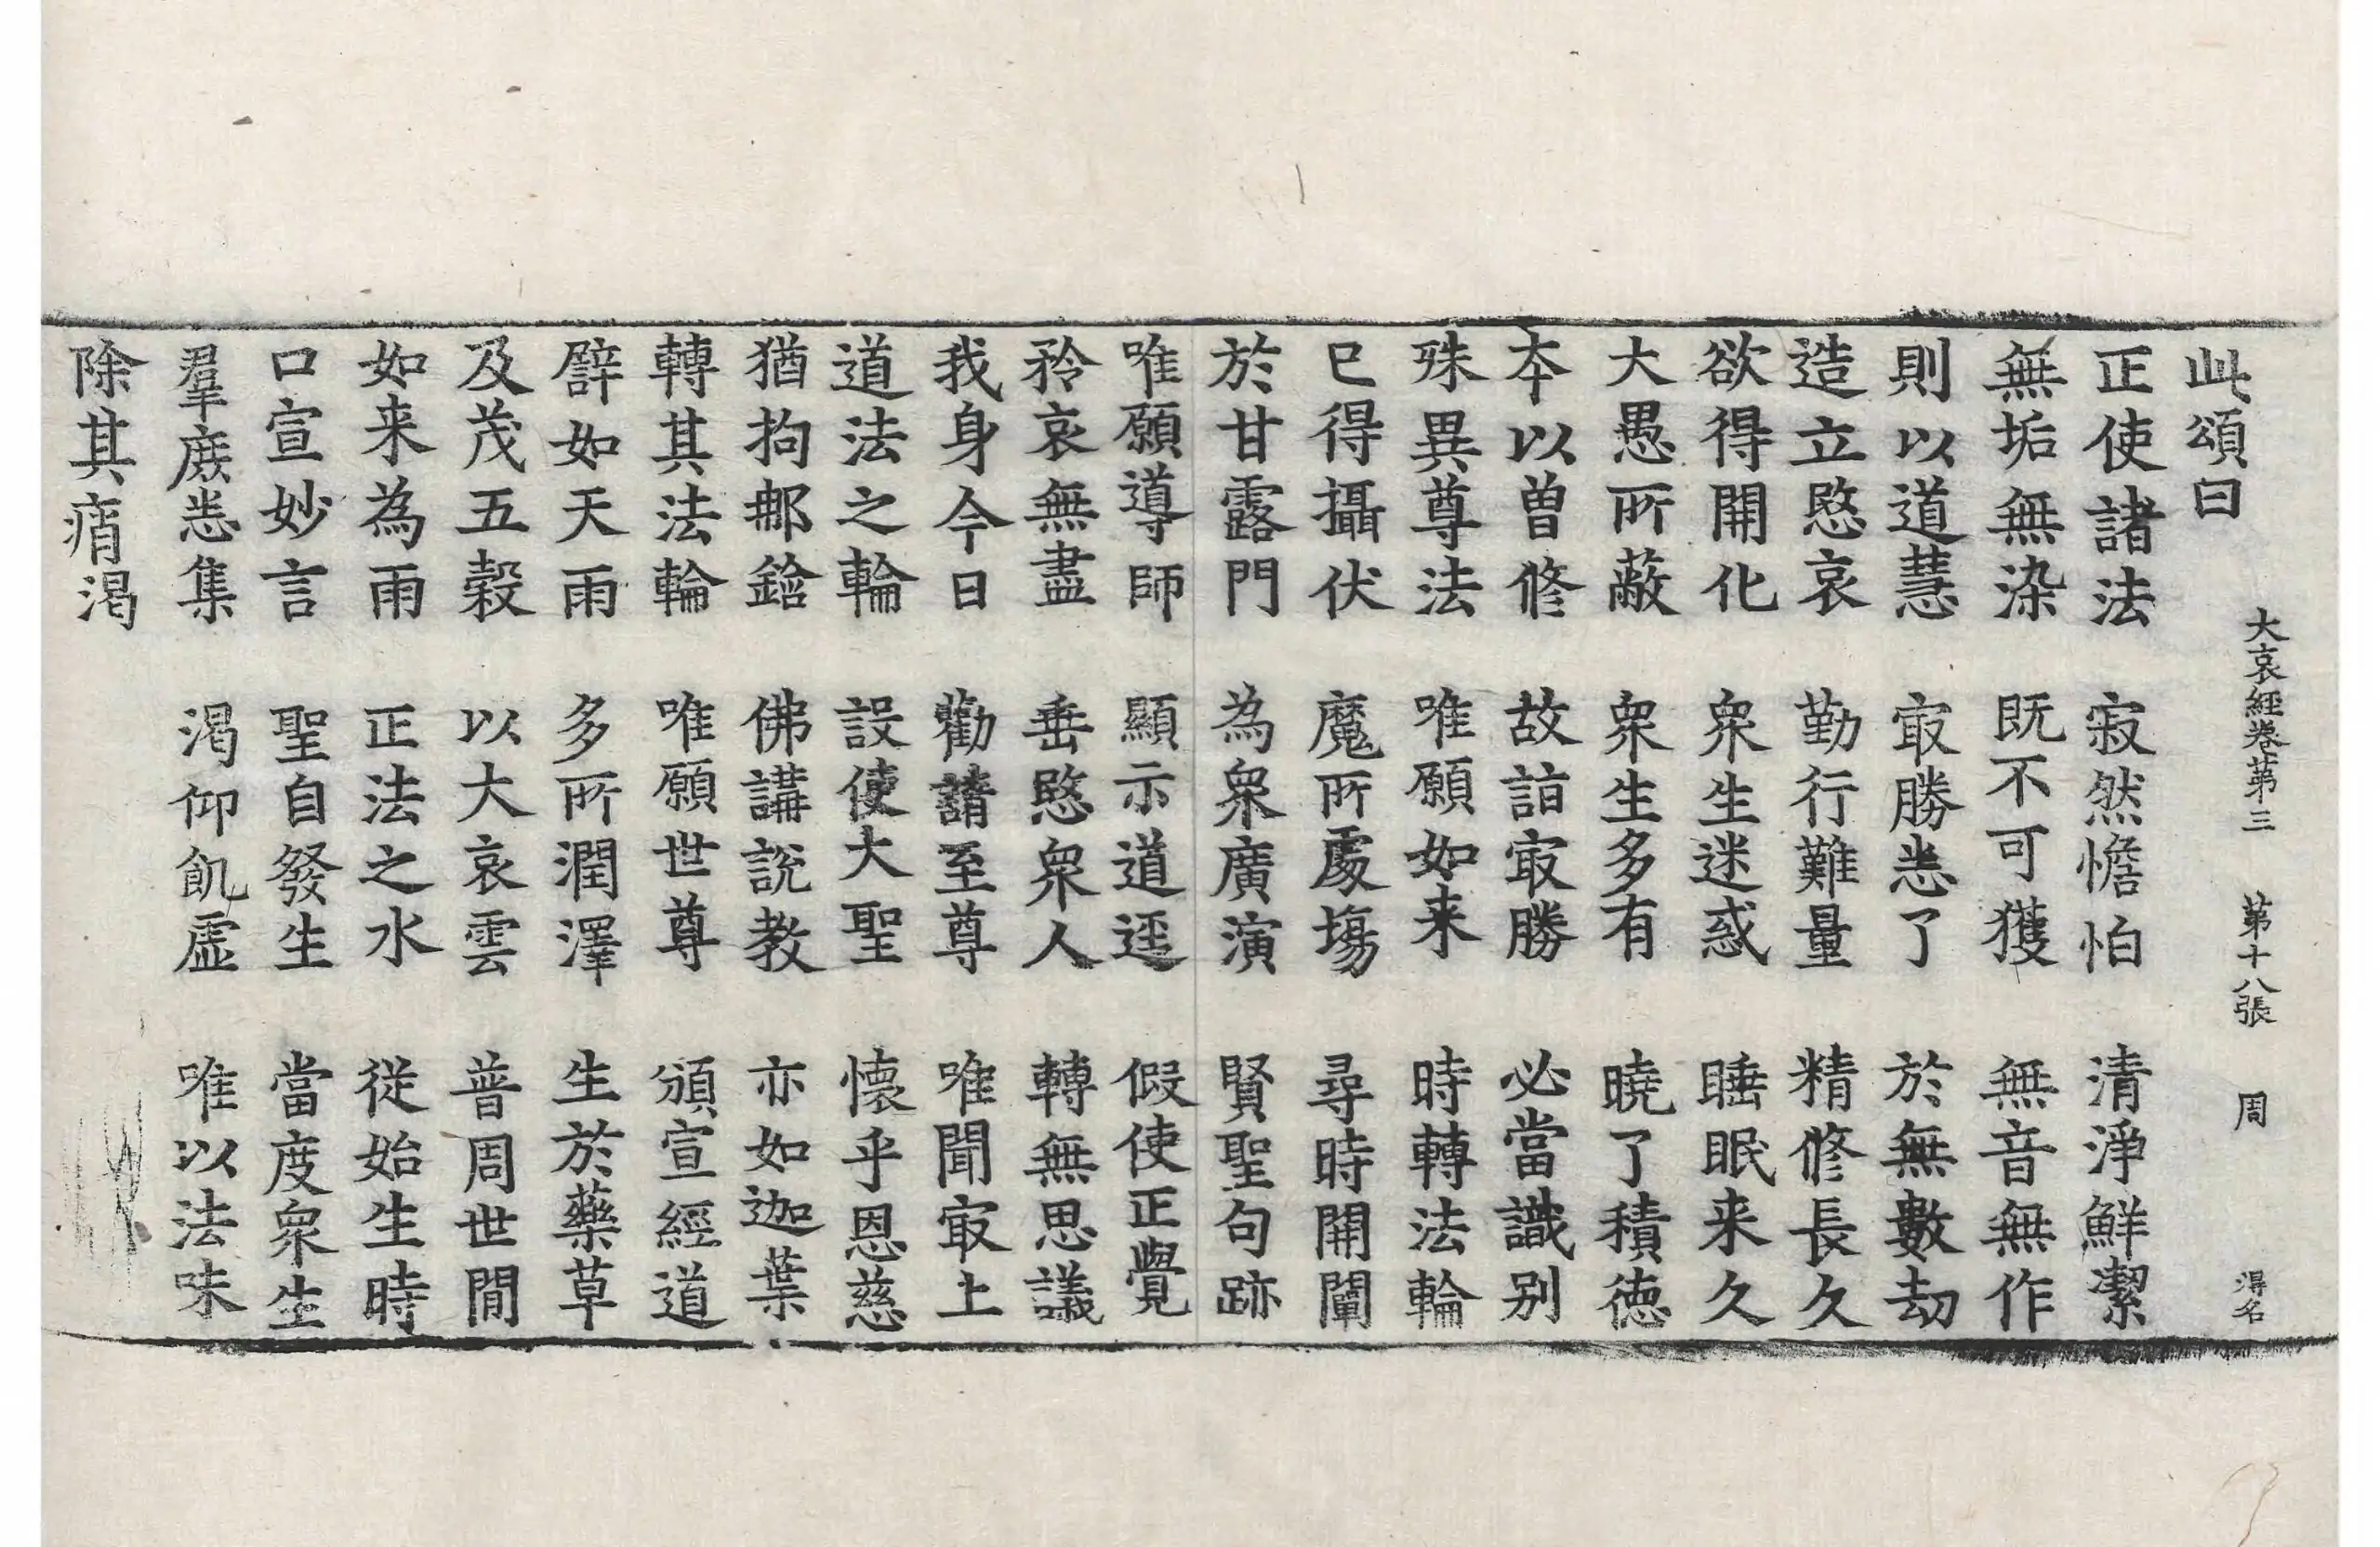 大哀經卷第三　第十八張　周　得名
此頌曰
正使諸法　寂然憺怕　清淨鮮潔
無垢無染　既不可獲　無音無作
則以道慧　㝡勝悉了　於無數劫
造立愍哀　勤行難量　精修長久
欲得開化　衆生迷惑　睡眠来久
大愚所蔽　衆生多有　曉了積德
本以曽修　故詣㝡勝　必當識別
殊異尊法　唯願如来　時轉法輪
已得攝伏　魔所處場　尋時開闡
於甘露門　為衆廣演　賢聖句跡
唯願導師　顯示道逕　假使正覺
矜哀無盡　垂愍衆人　轉無思議
我身今日　勸請至尊　唯聞㝡上
道法之輪　設使大聖　懷乎恩慈
猶拘鄁鋡　佛講說教　亦如迦葉
轉其法輪　唯願世尊　頒宣經道
譬如天雨　多所潤澤　生於藥草
及茂五穀　以大哀雲　普周世間
如来為雨　正法之水　從始生時
口宣妙言　聖自發生　當度衆生
羣庶悉集　渴仰飢虛　唯以法味
除其痟渴